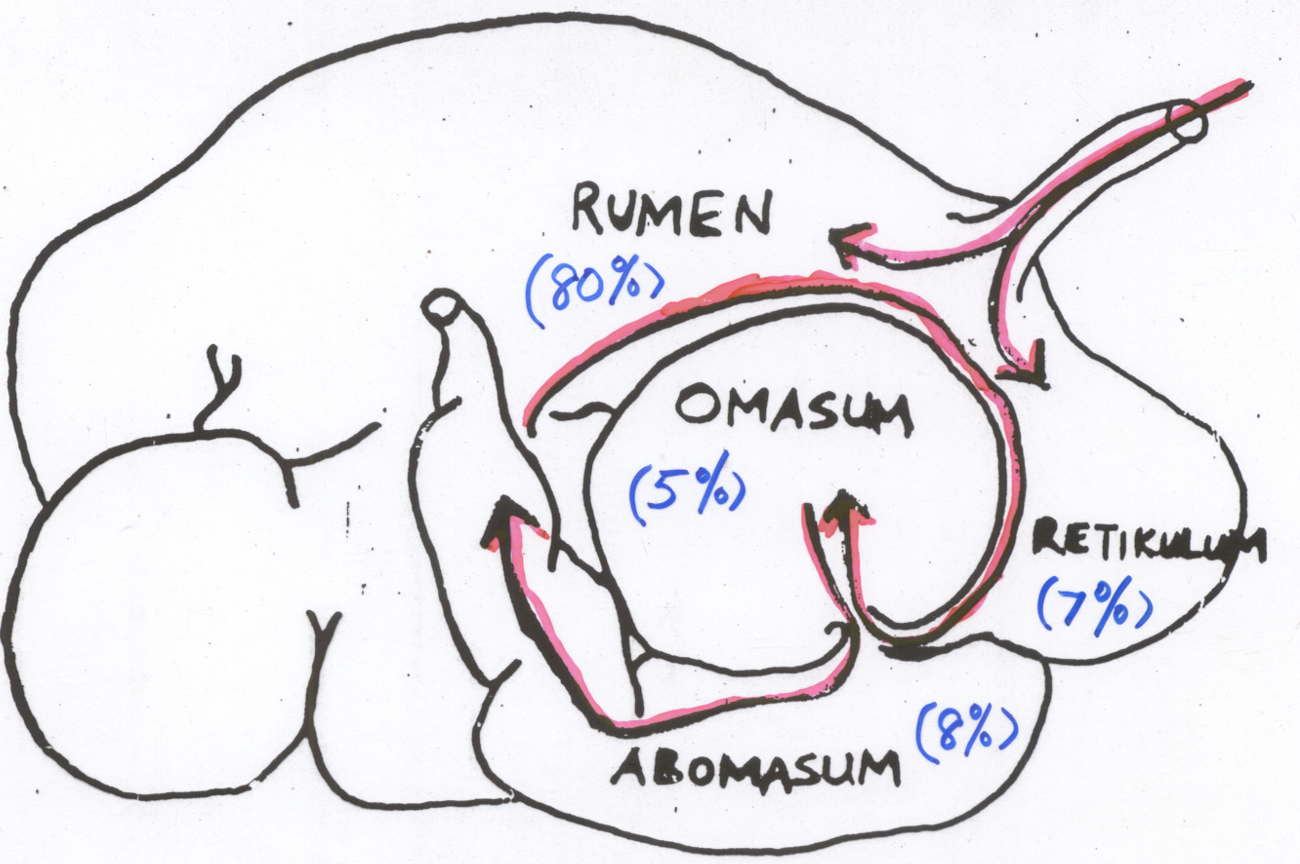 RUMEN
(80%)
OMASUM
(5%)
RETIKULUM
(7%)
ABOMASUM
(8%)